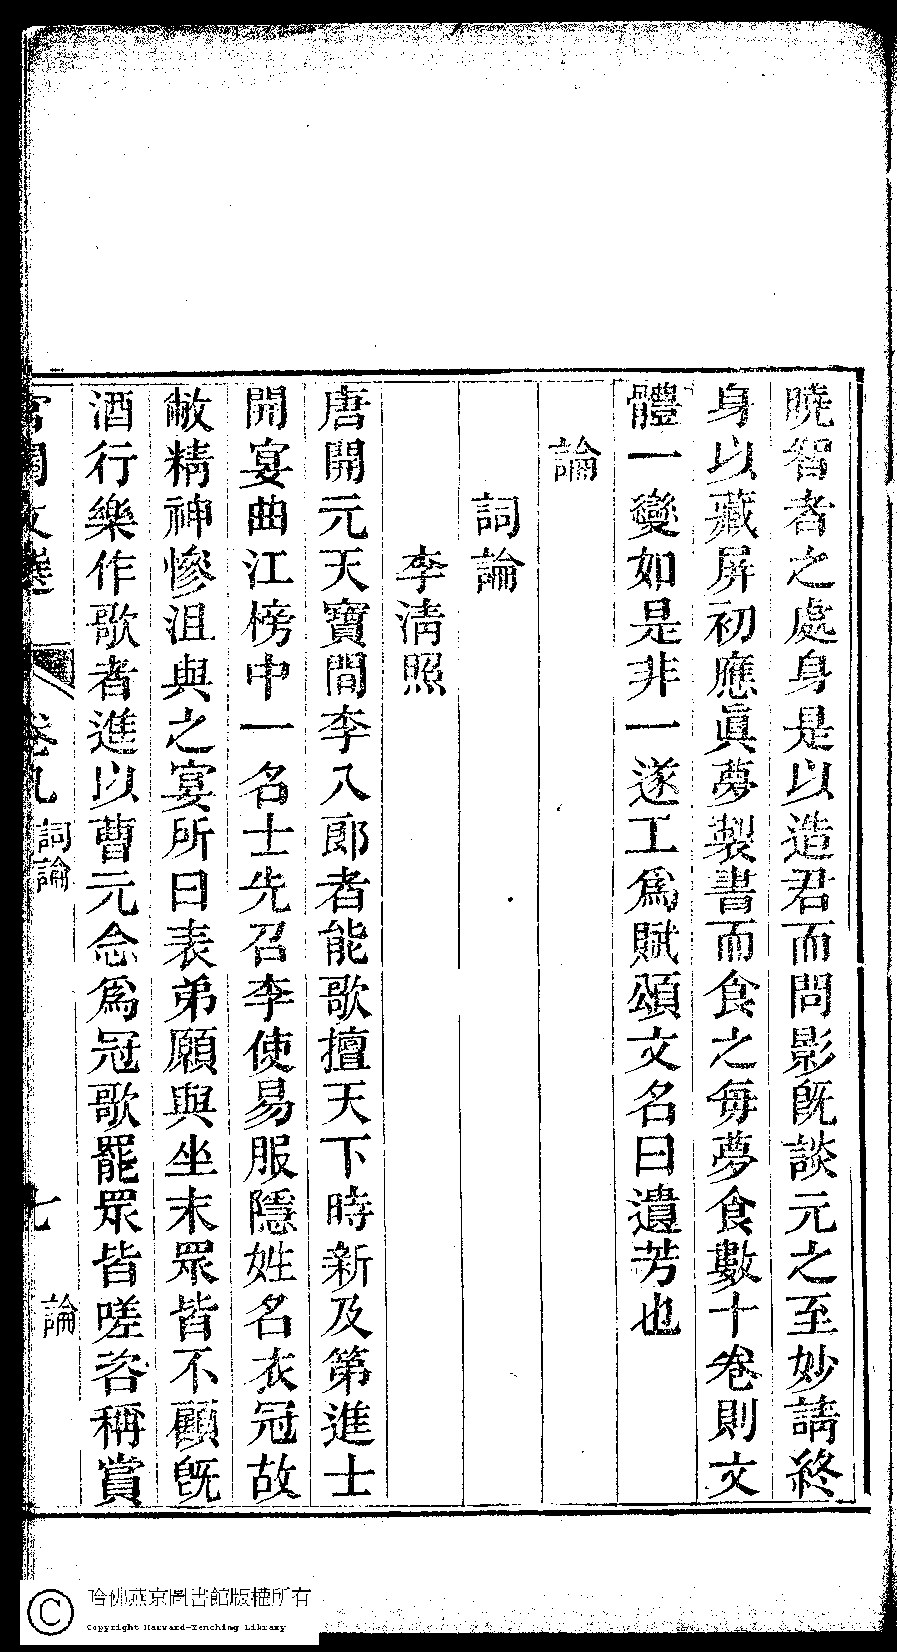 曉智者之處身是以造君而問影旣談元之至妙請終
身以藏屏初應眞夢製書而食之每夢食數十卷則文
體一變如是非一遂工爲賦頌文名曰遺芳也
論
詞論
李淸照
唐開元天寶間李八郎者能歌擅天下時新及第進士
開宴曲江榜中一名士先召李使易服隱姓名衣冠故
敝精神慘沮與之宴所曰表弟願與坐末眾皆不顧旣
酒行樂作歌者進以曹元念爲冠歌罷眾皆嗟咨稱賞
宮閨文選 卷九 詞論 七 論
哈佛燕京圖書館版權所有
Copyright Harvard-Yenching Library